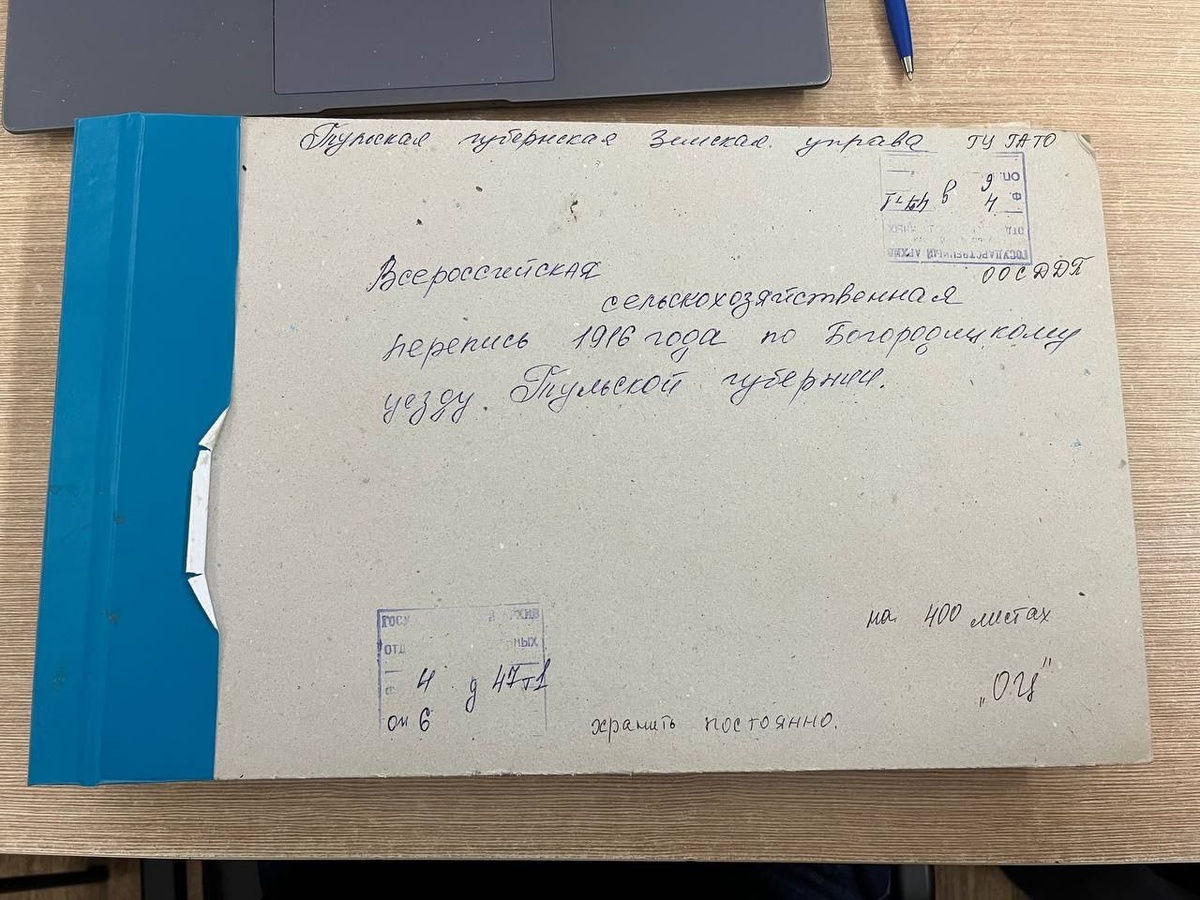 Тульская губернская Земская управа ГУ ГАТО
ГОСУДАРСТВЕННЫЙ АРХИВ
ОТД
Ф. 4
ОП. 6
ООСДДП
Всероссийская
сельскохозяйственная
перепись 1916 года по Богородицкому
уезду Тульской губернии.
на 400 листах
"ОЦ"
ГОСУ
ОТД
4 д 47т1
оп 6
хранить постоянно.